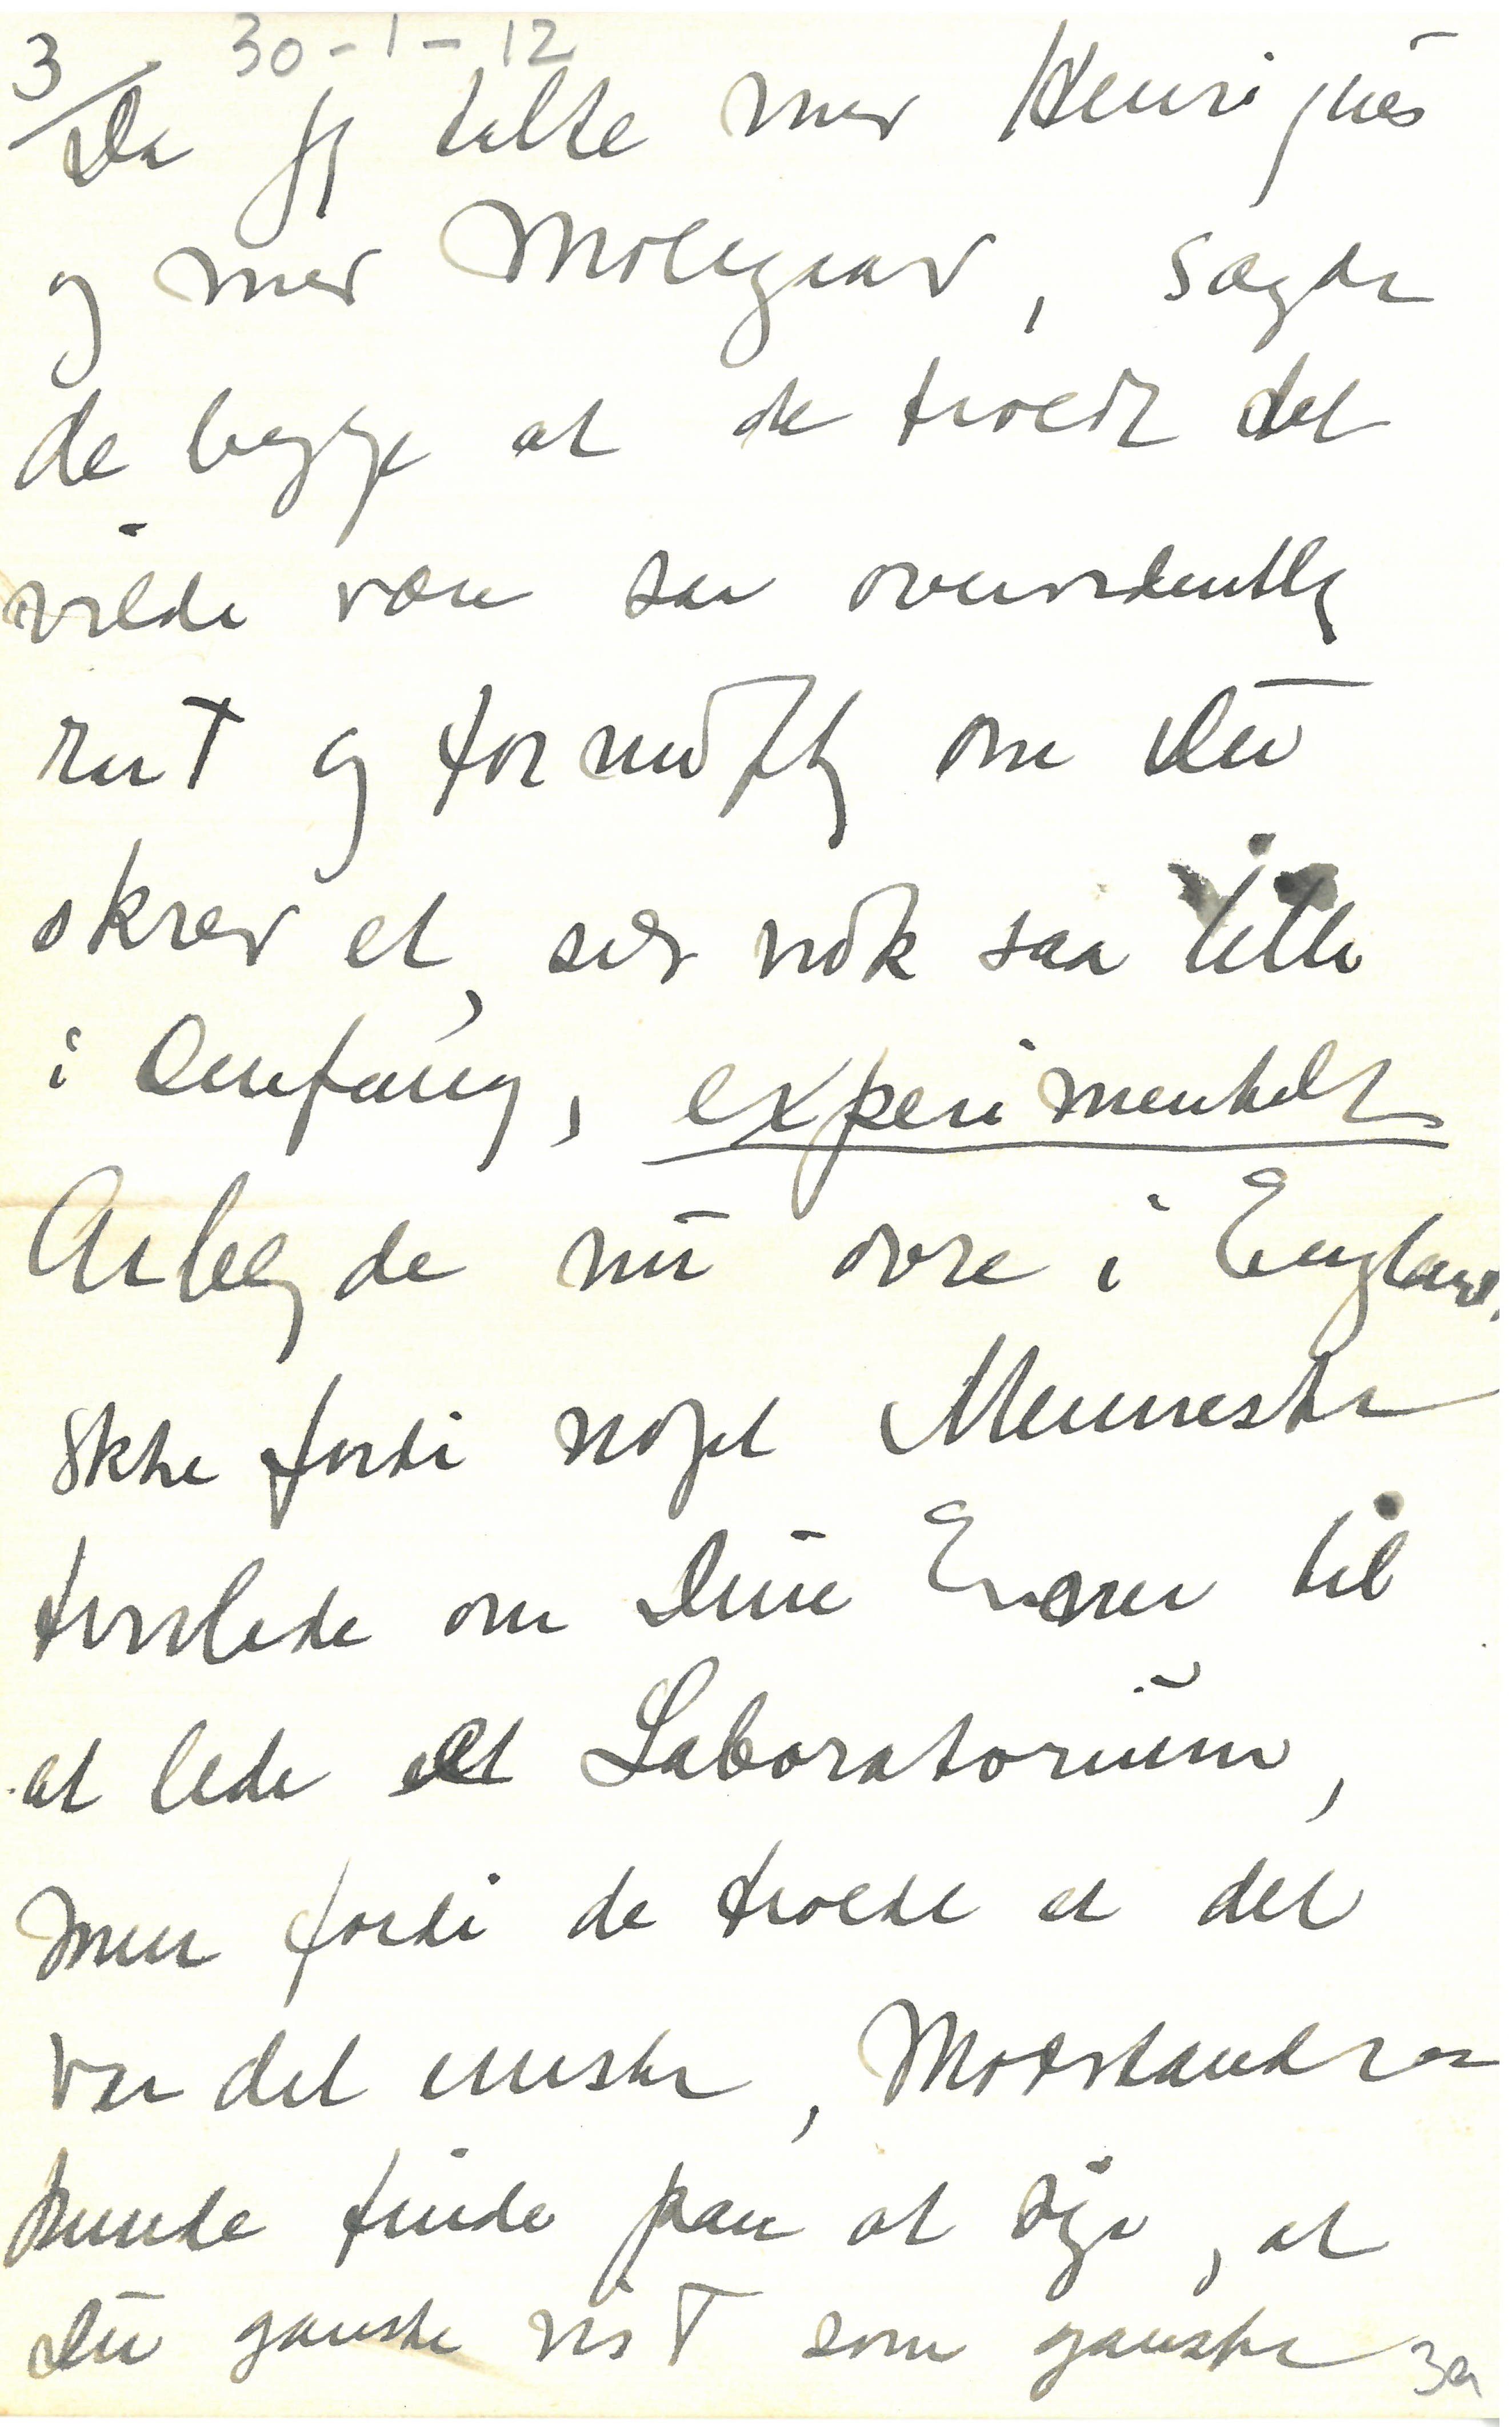 3/ 30-1-12
Da jeg talte med Henriques
og med Møllgaard, sagde
de begge at de troede det
vilde være saa overordentlig
rart og fornuftig om Du
skrev et, selv nok saa lille
i Omfang, experimentelt
Arbejde nu ovre i England,
Ikke fordi noget Menneske
tvivlede om Dine Evner til
at lede et Laboratorium,
men fordi de troede at det
var det eneste, Modstandere
kunde finde paa at sige, at
Du ganske vist som ganske
3a